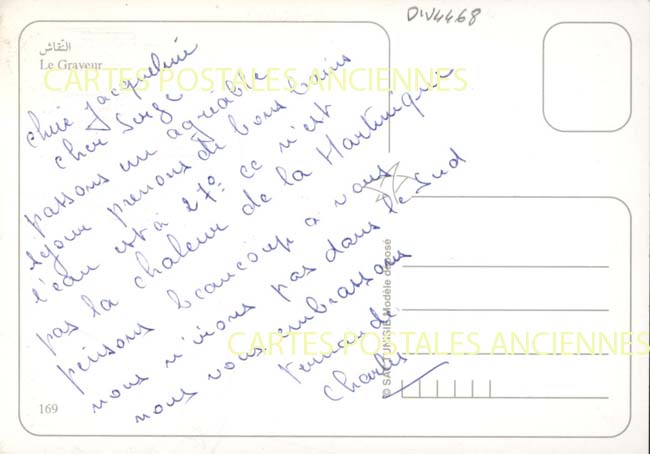 DIV4468
النقاش
Le Graveur
CARTES POSTALES ANCIENNES
chère Jacqueline
cher Serge
passons un agréable
séjour prenons de bons bains
l'eau est à 27° ce n'est
pas la chaleur de la Martinique
pensons beaucoup a vous
nous n'irons pas dans le Sud
nous vous embrassons
Fernande
Charles
CARTES POSTALES ANCIENNES
TUNISIE Modèle déposé
169